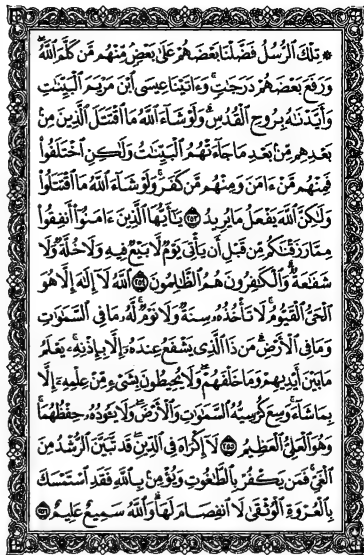 ۞ تِلْكَ ٱلرُّسُلُ فَضَّلْنَا بَعْضَهُمْ عَلَىٰ بَعْضٍ مِّنْهُم مَّن كَلَّمَ ٱللَّهُ
وَرَفَعَ بَعْضَهُمْ دَرَجَٰتٍ وَءَاتَيْنَا عِيسَى ٱبْنَ مَرْيَمَ ٱلْبَيِّنَٰتِ
وَأَيَّدْنَٰهُ بِرُوحِ ٱلْقُدُسِ وَلَوْ شَآءَ ٱللَّهُ مَا ٱقْتَتَلَ ٱلَّذِينَ مِنۢ
بَعْدِهِم مِّنۢ بَعْدِ مَا جَآءَتْهُمُ ٱلْبَيِّنَٰتُ وَلَٰكِنِ ٱخْتَلَفُوا۟
فَمِنْهُم مَّنْ ءَامَنَ وَمِنْهُم مَّن كَفَرَ وَلَوْ شَآءَ ٱللَّهُ مَا ٱقْتَتَلُوا۟
وَلَٰكِنَّ ٱللَّهَ يَفْعَلُ مَا يُرِيدُ ۝٢٥٣ يَٰٓأَيُّهَا ٱلَّذِينَ ءَامَنُوٓا۟ أَنفِقُوا۟
مِمَّا رَزَقْنَٰكُم مِّن قَبْلِ أَن يَأْتِىَ يَوْمٌ لَّا بَيْعٌ فِيهِ وَلَا خُلَّةٌ وَلَا
شَفَٰعَةٌ وَٱلْكَٰفِرُونَ هُمُ ٱلظَّٰلِمُونَ ۝٢٥٤ ٱللَّهُ لَآ إِلَٰهَ إِلَّا هُوَ
ٱلْحَىُّ ٱلْقَيُّومُ لَا تَأْخُذُهُۥ سِنَةٌ وَلَا نَوْمٌ لَّهُۥ مَا فِى ٱلسَّمَٰوَٰتِ
وَمَا فِى ٱلْأَرْضِ مَن ذَا ٱلَّذِى يَشْفَعُ عِندَهُۥٓ إِلَّا بِإِذْنِهِۦ يَعْلَمُ
مَا بَيْنَ أَيْدِيهِمْ وَمَا خَلْفَهُمْ وَلَا يُحِيطُونَ بِشَىْءٍ مِّنْ عِلْمِهِۦٓ إِلَّا
بِمَا شَآءَ وَسِعَ كُرْسِيُّهُ ٱلسَّمَٰوَٰتِ وَٱلْأَرْضَ وَلَا يَـُٔودُهُۥ حِفْظُهُمَا
وَهُوَ ٱلْعَلِىُّ ٱلْعَظِيمُ ۝٢٥٥ لَآ إِكْرَاهَ فِى ٱلدِّينِ قَد تَّبَيَّنَ ٱلرُّشْدُ مِنَ
ٱلْغَىِّ فَمَن يَكْفُرْ بِٱلطَّٰغُوتِ وَيُؤْمِنۢ بِٱللَّهِ فَقَدِ ٱسْتَمْسَكَ
بِٱلْعُرْوَةِ ٱلْوُثْقَىٰ لَا ٱنفِصَامَ لَهَا وَٱللَّهُ سَمِيعٌ عَلِيمٌ ۝٢٥٦